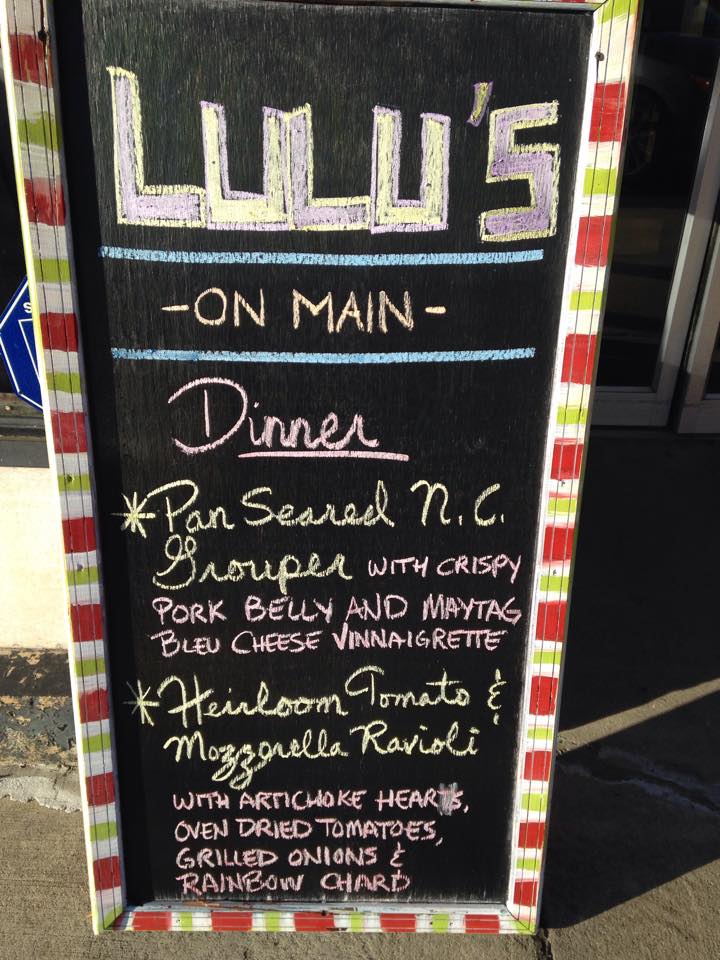 LULU'S
-ON MAIN-
Dinner
*Pan Seared N.C.
Grouper WITH CRISPY
PORK BELLY AND MAYTAG
BLEU CHEESE VINNAIGRETTE
*Heirloom Tomato &
Mozzerella Ravioli
WITH ARTICHOKE HEARTS,
OVEN DRIED TOMATOES,
GRILLED ONIONS &
RAINBOW CHARD